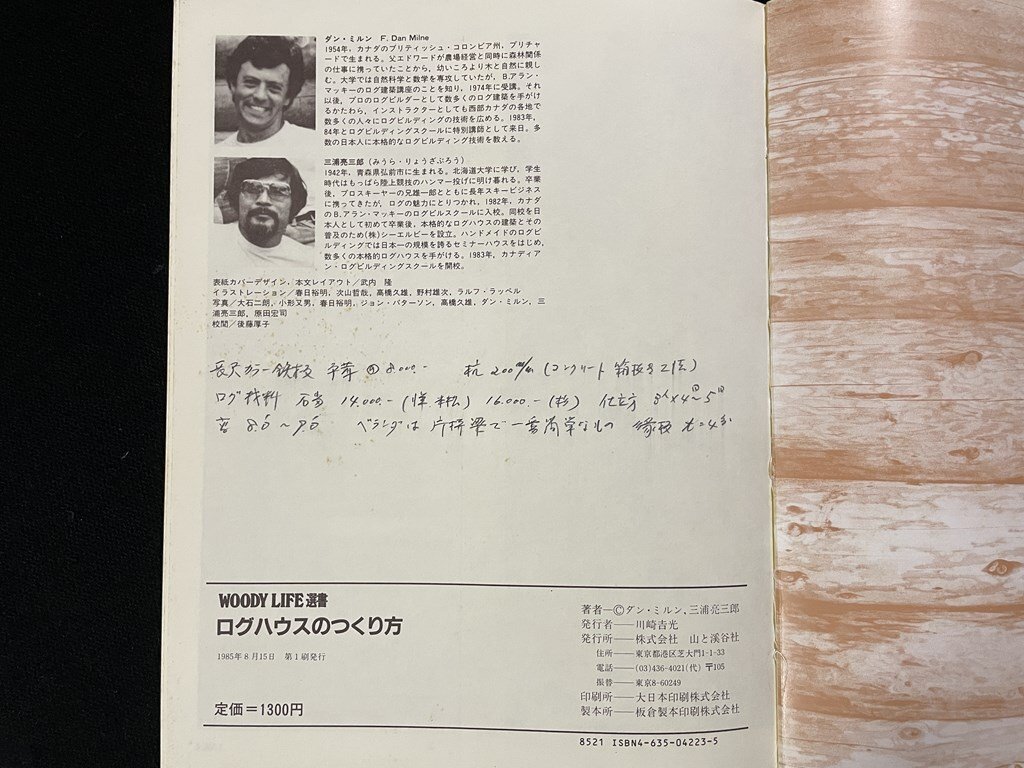 ダン・ミルン F. Dan Milne
1954年，カナダのブリティッシュ・コロンビア州，プリチャ
ードで生まれる。父エドワードが農場経営と同時に森林関係
の仕事に携っていたことから，幼いころより木と自然に親し
む。大学では自然科学と数学を専攻していたが，B.アラン・
マッキーのログ建築講座のことを知り，1974年に受講。それ
以後，プロのログビルダーとして数多くのログ建築を手がけ
るかたわら，インストラクターとしても西部カナダの各地で
数多くの人々にログビルディングの技術を広める。1983年，
84年とログビルディングスクールに特別講師として来日。多
数の日本人に本格的なログビルディング技術を教える。
三浦亮三郎（みうら・りょうざぶろう）
1942年，青森県弘前市に生まれる。北海道大学に学び，学生
時代はもっぱら陸上競技のハンマー投げに明け暮れる。卒業
後，プロスキーヤーの兄雄一郎とともに長年スキービジネス
に携ってきたが，ログの魅力にとりつかれ，1982年，カナダ
のB.アラン・マッキーのログビルスクールに入校。同校を日
本人として初めて卒業後，本格的なログハウスの建築とその
普及のため(株)シーエルビーを設立。ハンドメイドのログビ
ルディングでは日本一の規模を誇るセミナーハウスをはじめ，
数多くの本格的ログハウスを手がける。1983年，カナディア
ン・ログビルディングスクールを開校。
表紙カバーデザイン／本文レイアウト／武内 隆
イラストレーション／春日裕明，次山哲哉，高橋久雄，野村雄次，ラルフ・ラッペル
写真／大石二朗，小形又男，春日裕明，ジョン・パターソン，高橋久雄，ダン・ミルン，三
浦亮三郎，原田宏司
校閲／後藤厚子
長尺カラー鉄板 8.000.- 杭 200m/m (コンクリート
ログ材料 石当 14.000.- ( 16.000.- (杉) 4～5
8.0～9.0 ベランダは 片持梁で 一番 なもの 縁板
WOODY LIFE 選書
ログハウスのつくり方
1985年8月15日 第1刷発行
定価＝1300円
著者―©ダン・ミルン、三浦亮三郎
発行者―川崎吉光
発行所―株式会社 山と溪谷社
住所―東京都港区芝大門1-1-33
電話―(03)436-4021(代) 〒105
振替―東京8-60249
印刷所―大日本印刷株式会社
製本所―板倉製本印刷株式会社
8521 ISBN4-635-04223-5